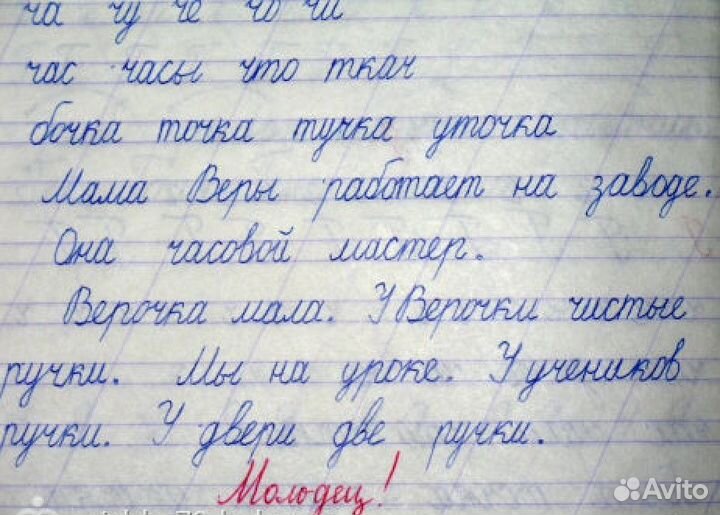 ча чу че чо чи
час часы что ткач
бочка точка тучка уточка
Мама Веры работает на заводе.
Она часовой мастер.
Верочка мала. У Верочки чистые
ручки. Мы на уроке. У учеников
ручки. У двери две ручки.
Молодец!
Avito